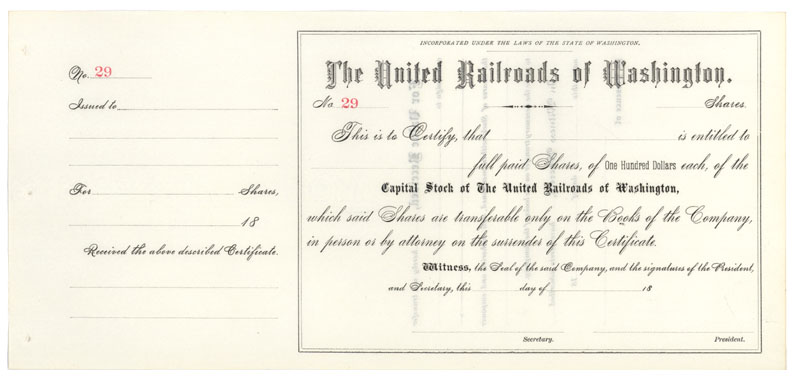 No. 29
Issued to
For Shares,
18
Received the above described Certificate.
INCORPORATED UNDER THE LAWS OF THE STATE OF WASHINGTON.
The United Railroads of Washington.
No. 29 Shares.
This is to Certify, that is entitled to
full paid Shares, of One Hundred Dollars each, of the
Capital Stock of The United Railroads of Washington,
which said Shares are transferable only on the Books of the Company,
in person or by attorney on the surrender of this Certificate.
Witness, the Seal of the said Company, and the signatures of the President,
and Secretary, this day of 18
Secretary. President.